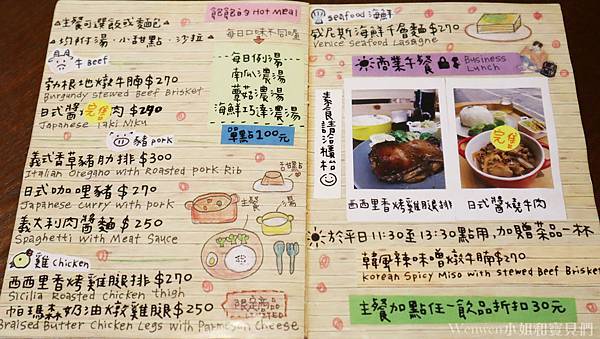 飽飽的 Hot Meal
主餐可選飯或麵
均附湯、小甜點、沙拉
每日口味不同喔
每日例湯
南瓜濃湯
蘑菇濃湯
海鮮巧達濃湯
單點100元
牛 Beef
勃根地燉牛腩$270
Burgundy Stewed Beef Brisket
日式醬 完售 肉$290
Japanese Yaki Niku
豬 pork
義式香草豬肋排 $300
Italian Oregano with Roasted pork Rib
日式咖哩豬 $270
Japanese curry with pork
義大利肉醬麵 $250
Spaghetti with Meat Sauce
甜點
主餐
湯
雞 Chicken
西西里香烤雞腿排 $270
Sicilia Roasted chicken thigh
帕瑪森奶油燉雞腿 $250
Braised Butter Chicken Legs with Parmesan Cheese
限定商品
Seafood 海鮮
威尼斯海鮮千層麵$270
Venice Seafood Lasagne
商業午餐 Business Lunch
素食請洽櫃枱
完售
西西里香烤雞腿排
日式醬燒牛肉
於平日11:30至13:30點用,加贈菜品一杯
韓風辣味噌燉牛腩$270
Korean Spicy Miso with Stewed Beef Brisket
主餐加點任一飲品折扣30元
Wenwen小姐和寶貝們